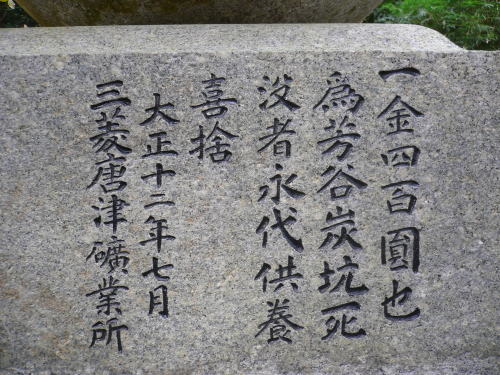 一金四百圓也
為芳谷炭坑死
没者永代供養
喜捨
大正十二年七月
三菱唐津礦業所